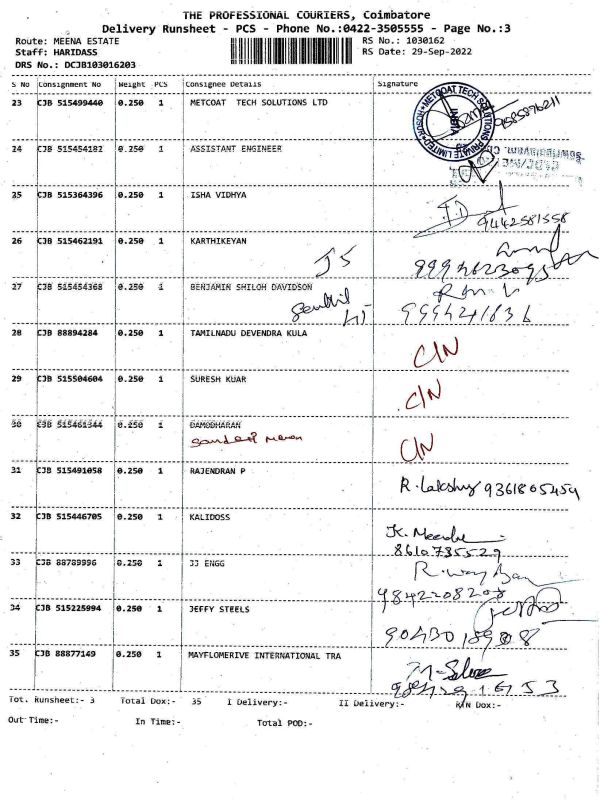 THE PROFESSIONAL COURIERS, Coimbatore
Delivery Runsheet - PCS - Phone No.:0422-3505555 - Page No.:3
Route: MEENA ESTATE RS No.: 1030162
Staff: HARIDASS RS Date: 29-Sep-2022
DRS No.: DCJB103016203
S No Consignment No Weight PCS Consignee Details Signature
23 CJB 515499440 0.250 1 METCOAT TECH SOLUTIONS LTD
METCOAT TECH SOLUTIONS PRIVATE LIMITED
INDIA
9585876211
24 CJB 515454182 0.250 1 ASSISTANT ENGINEER
25 CJB 515364396 0.250 1 ISHA VIDHYA
9442581558
26 CJB 515462191 0.250 1 KARTHIKEYAN
JS
27 CJB 515454368 0.250 1 BENJAMIN SHILOH DAVIDSON
Senthil
28 CJB 88894284 0.250 1 TAMILNADU DEVENDRA KULA
C/N
29 CJB 515504604 0.250 1 SURESH KUAR
C/N
30 CJB 515461344 0.250 1 DAMODHARAN
C/N
31 CJB 515491058 0.250 1 RAJENDRAN P
R. Lakshmy 9361805459
32 CJB 515446705 0.250 1 KALIDOSS
K. Meena
8610735529
33 CJB 88789996 0.250 1 JJ ENGG
9842208208
34 CJB 515225994 0.250 1 JEFFY STEELS
35 CJB 88877149 0.250 1 MAYFLOMERIVE INTERNATIONAL TRA
Tot. Runsheet:- 3 Total Dox:- 35 I Delivery:- II Delivery:- R/N Dox:-
Out Time:- In Time:- Total POD:-